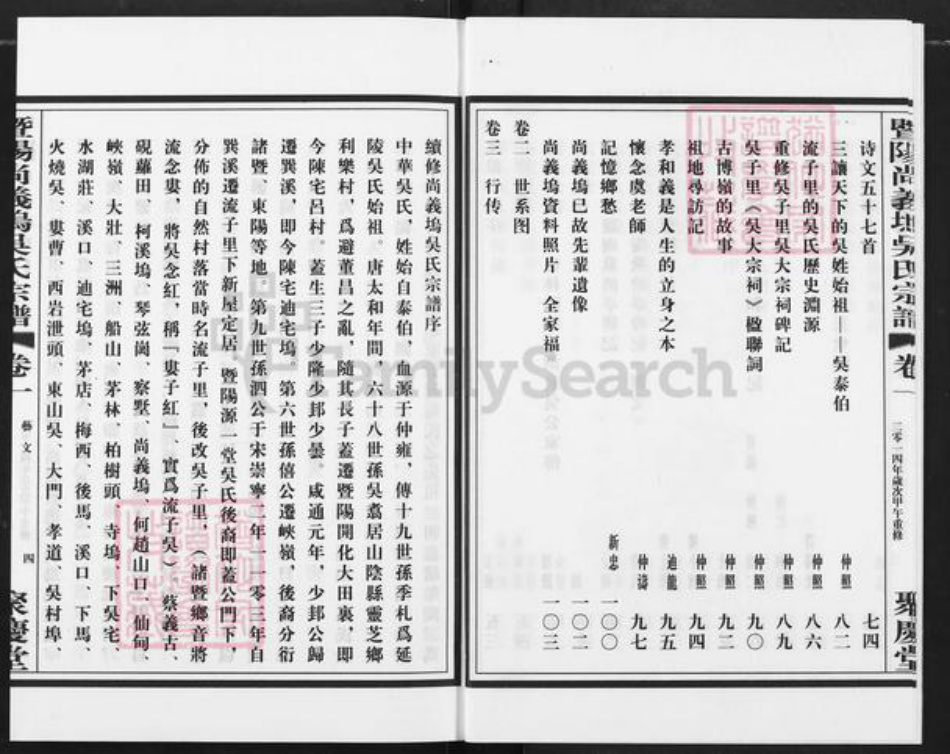 暨陽尚義塢吳氏宗譜 卷一 二零一四年歲次甲午重修 聚慶堂
诗文五十七首 七四
三讓天下的吳姓始祖——吳泰伯 仲照 八二
流子里的吳氏歷史淵源 仲照 八六
重修吳子里吳大宗祠碑記 仲照 八九
吳子里《吳大宗祠》楹聯詞 仲照 九〇
古博嶺的故事 仲照 九二
祖地尋訪記 仲照 九四
孝和義是人生的立身之本 迪龍 九五
懷念虞老師 仲濤 九七
記憶鄉愁 新忠 一〇〇
尚義塢已故先輩遺像 一〇二
尚義塢資料照片、全家福 一〇三
卷二 世系图
卷三 行传
續修尚義塢吳氏宗譜序
中華吳氏、姓始自泰伯，血源于仲雍，傳十九世孫季札爲延
陵吳氏始祖。唐太和年間，六十八世孫吳翥居山陰縣靈芝鄉
利樂村，爲避董昌之亂，隨其長子蓋遷暨陽開化大田裏，即
今陳宅呂村。蓋生三子少隆少邽少曇。咸通元年，少邽公歸
遷巽溪，即今陳宅迪宅塢，第六世孫僖公遷峽嶺，後裔分衍
諸暨、東陽等地，第九世孫泗公于宋崇寧二年一一零三年自
巽溪遷流子里下新屋定居，暨陽源一堂吳氏後裔即蓋公門下，
分佈的自然村落當時名流子里，後改吳子里，（諸暨鄉音將
流念婁，將吳念紅，稱「婁子紅」實爲流子吳）、蔡義古、
硯蘿田、柯溪塢、琴弦崗、察墅、尚義塢、何趙山口、仙何
峽嶺、大壯、三洲、船山、茅林、柏樹頭、寺塢、下吳宅、
水湖莊、溪口、迪宅塢、茅店、梅西、後馬、溪口、下馬、
火燒吳、婁曹、西岩泄頭、東山吳、大門、孝道、吳村埠、
暨陽尚義塢吳氏宗譜 卷一 藝文 四 聚慶堂
FamilySearch